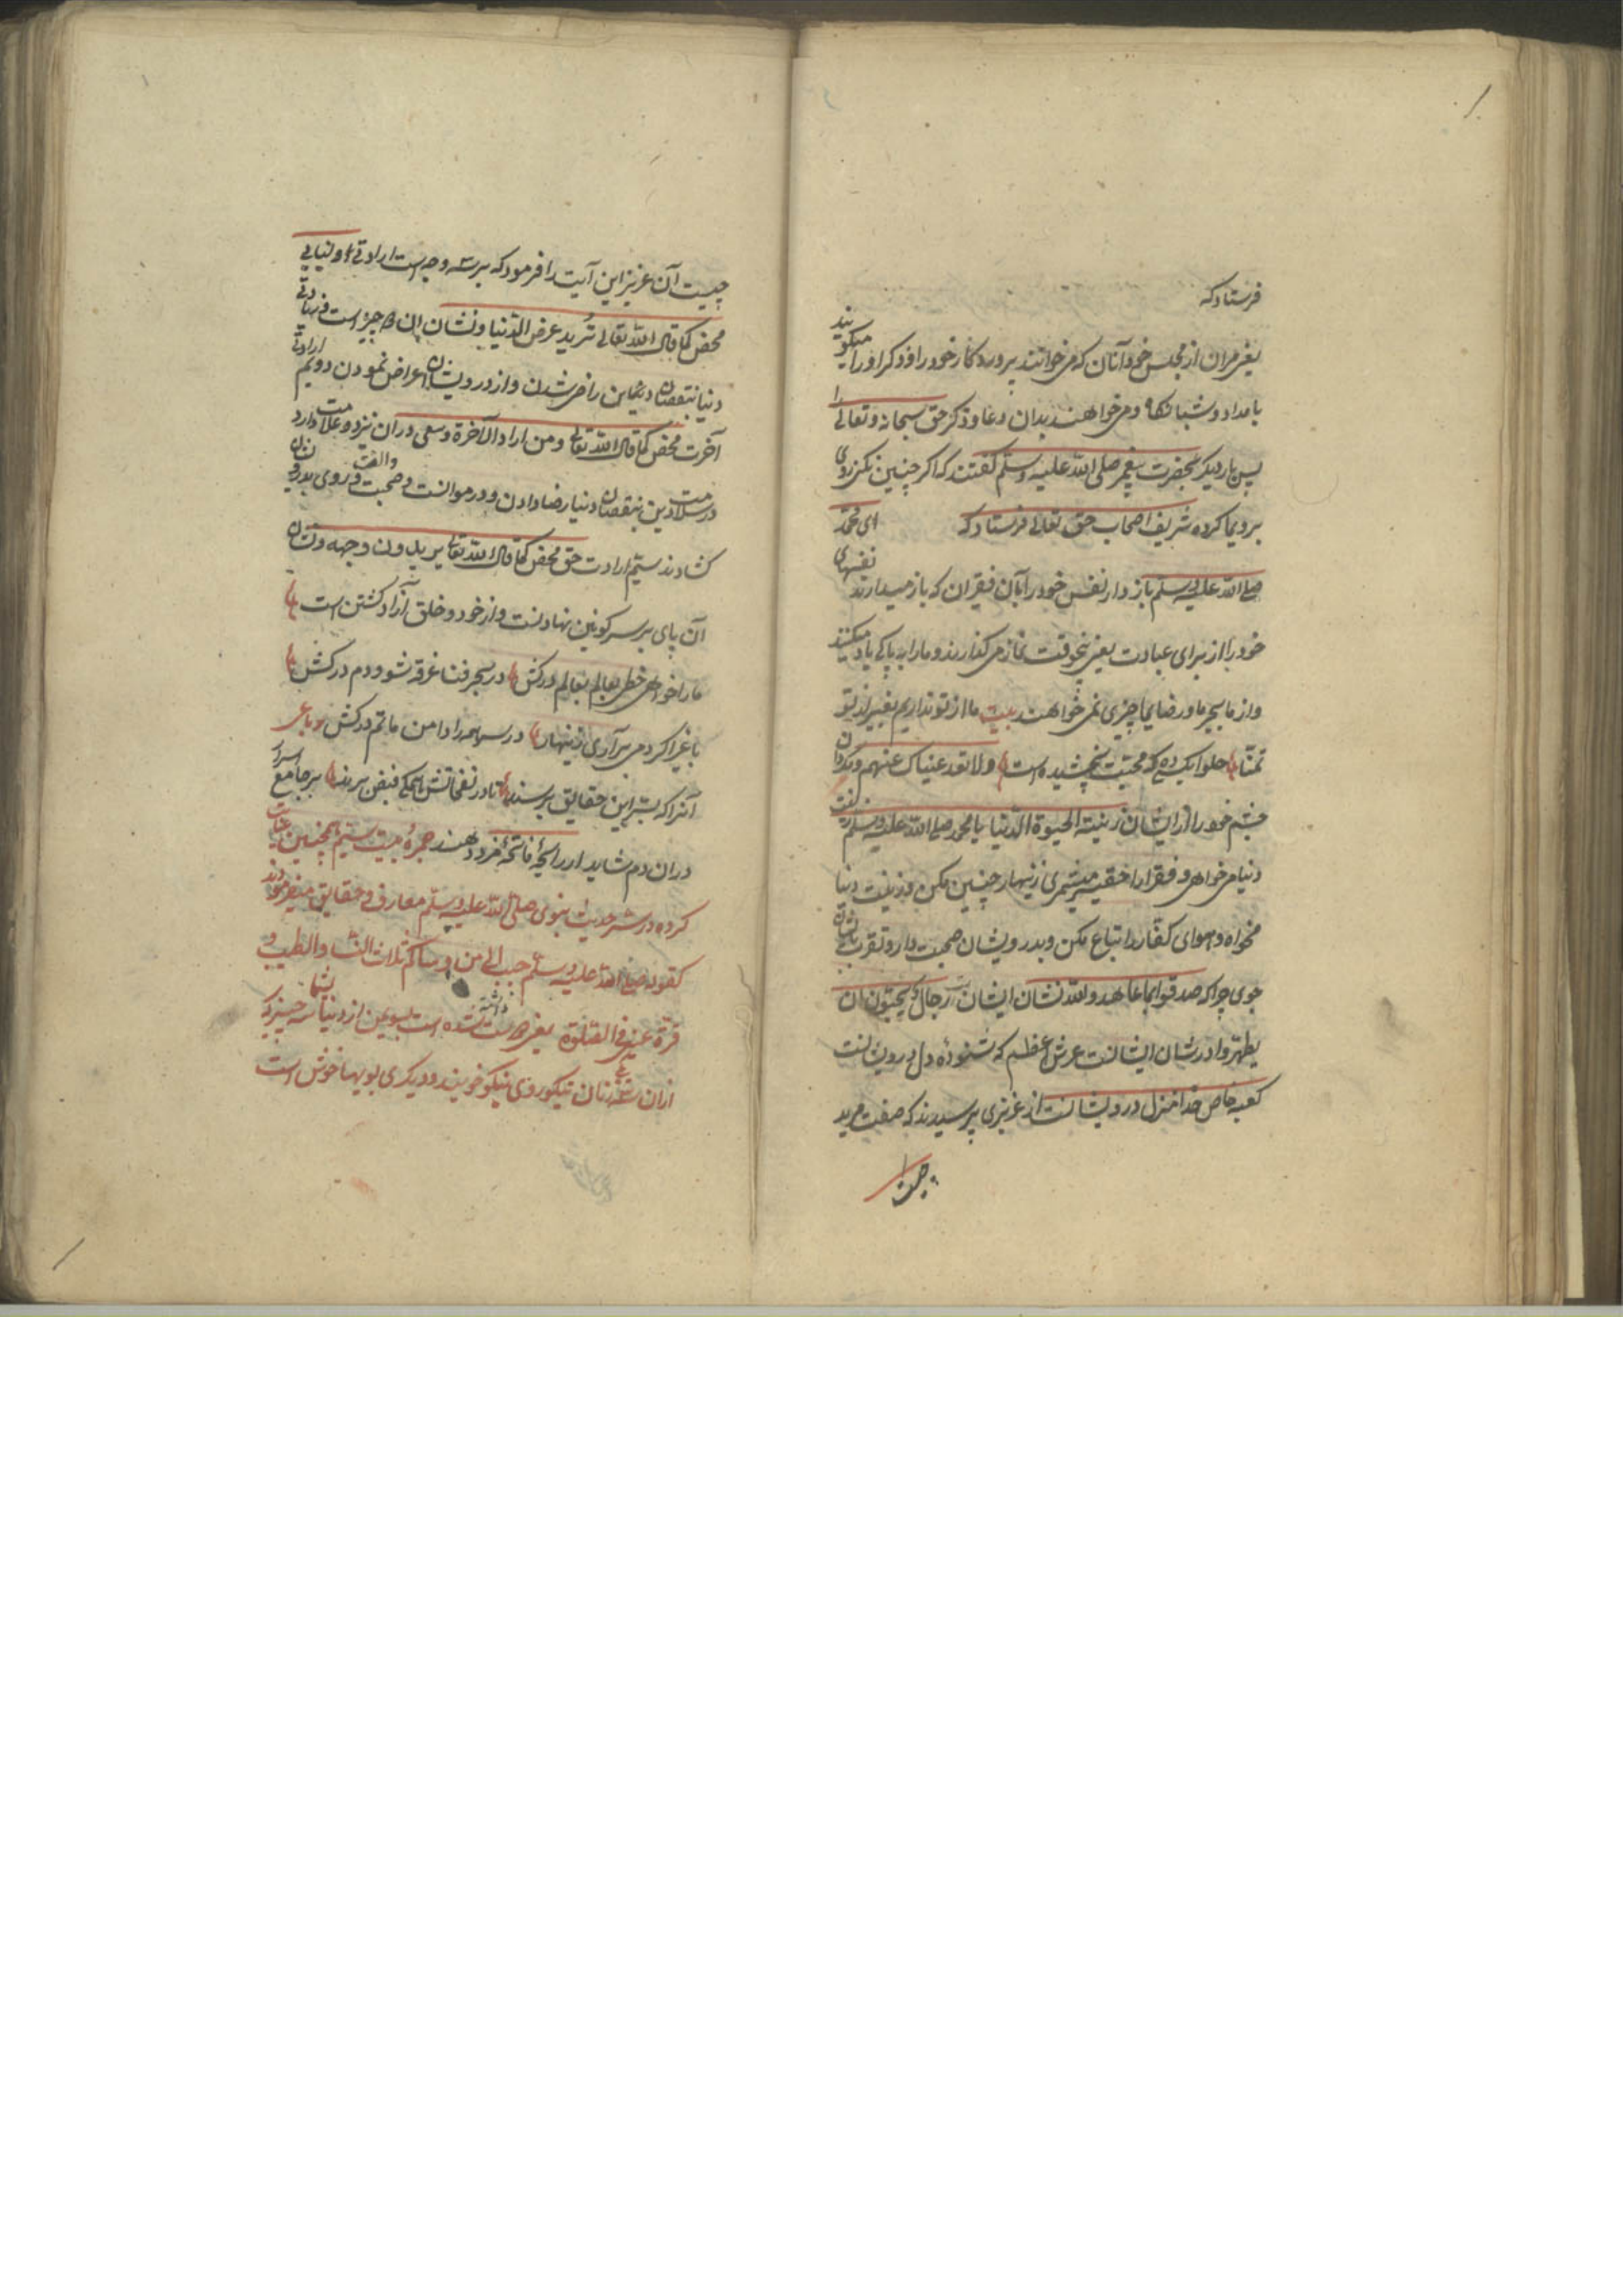 فرستاد که
یعنی مران از مجلس خود آنان که می خوانند پروردکار خود را و ذکر او را میکویند
بامداد و شبانکاه و می خواهند بدان دعا و ذکر حق سبحانه و تعالی را
پس بار دیکر بحضرت پیغمبر صلی الله علیه وسلم کفتند که اکر چنین نکنی روی
بروی ما کرده شریف اصحاب حق تعالی فرستاد که ای محمد
صلی الله علیه وسلم باز دار نفس خود را بآن فقیران که باز میدارند نفسهای
خود را از برای عبادت یعنی پنجوقت نماز می کذارند و ما را به پاکی یاد میکنند
و از ما بجز ما و رضای ما چیزی نمی خواهند بیت ما از تو نداریم بغیر از تو
تمنا حلوا بکسی ده که محبت نچشیده است ولا تعد عیناک عنهم و مکردان
چشم خود را از ایشان زینة الحیوة الدنیا یا محمد صلی الله علیه وسلم
دنیا می خواهی و فقرا را حقیر میشمری زنهار چنین مکن و زینت دنیا
مخواه و هوای کفار را اتباع مکن و بدرویشان صحبت دار و تقرب بایشان
جوی چرا که صدقوا ما عاهدوا الله نشان ایشان رجال یحبون ان
یطهروا در شان ایشانست عرش اعظم که شنودۀ دل درویشانست
کعبه خاص خدا منزل درویشانست از عزیزی پرسیدند که صفت مرید
چیست
چیست آن عزیز این آیت را فرمود که بر سه وجه است ارادتی دنیایی
محض کما قال الله تعالی ترید عرض الدنیا و نشان این چیز است زیادتی
دنیا بنقصان دین راضی شدن و از درویشان اعراض نمودن دویم ارادتی
آخرت محض کما قال الله تعالی ومن اراد الآخرة وسعی در آن نیز دو علامت دارد
در سلامت دین بنقصان دنیا رضا دادن و در موانست و صحبت والفت و روی بدرویشان
کشادند سیم ارادت حق محض کما قال الله تعالی یریدون وجهه و نشان
آن پای بر سر کونین نهادنست و از خود و خلق آزاد کشتن است
ما را خواهی خطی بعالم درکش در بحر فنا غرقه شو و دم درکش
با غیر اکر دمی برآری زنهار در سر همه را دامن ماتم درکش رباعی
آنرا که بسر این حقایق برسند تا در نفحاتش همکی فیض برند بر جامع اسرار
در آن دم شاید ار رایحۀ فاتحۀ مزد دهند حجرۀ بیت سیم همچنین عنایت
کرده در شرح حدیث نبوی صلی الله علیه وسلم معارف و حقایق میفرمودند
کقوله صلی الله علیه وسلم حبب الی من دنیاکم ثلاث النساء والطیب و
قرة عینی فی الصلوة یعنی دوست داشته شده است بسوی من از دنیا شما سه چیز که
ازان سه یکی زنان نیکو روی نیکو خویند و دیکری بویهاء خوش است